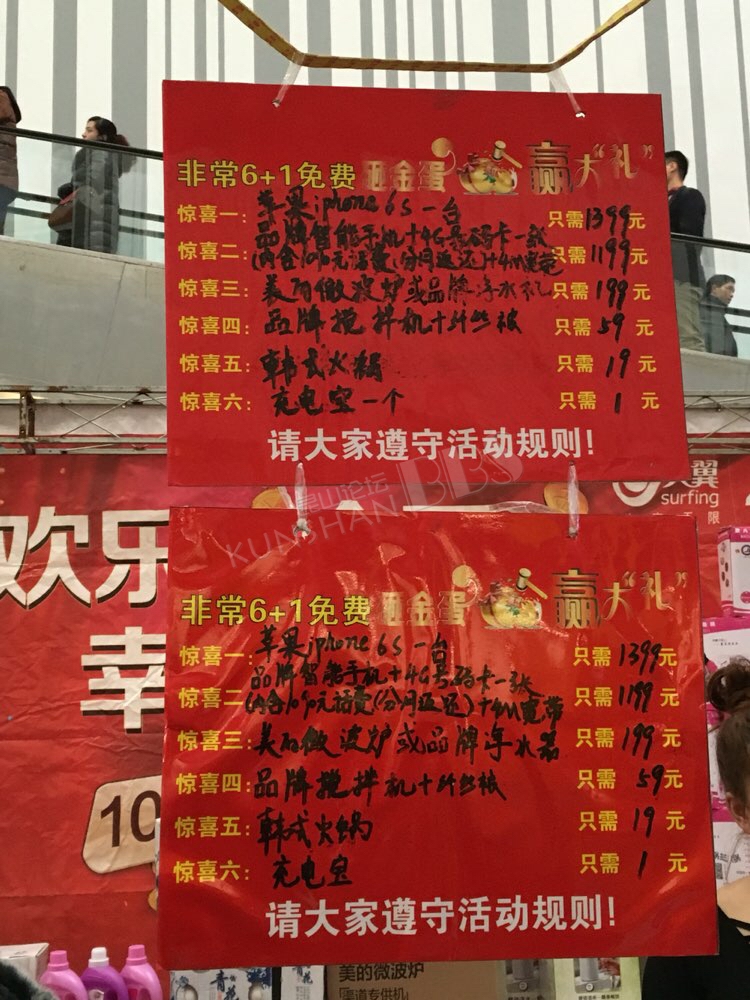 非常6+1免费砸金蛋 赢大“礼”
惊喜一: 苹果iphone 6s一台 只需1399元
惊喜二: 品牌智能手机+4G号码卡一张 只需1199元
(内含1090元话费(分月返还)+4M宽带
惊喜三: 美的微波炉或品牌净水机 只需199元
惊喜四: 品牌搅拌机+纤丝被 只需59元
惊喜五: 韩式火锅 只需19元
惊喜六: 充电宝一个 只需1元
请大家遵守活动规则!
昆山论坛
KUNSHAN BBS
天翼
surfing
无限
欢乐
幸
10
非常6+1免费砸金蛋 赢大“礼”
惊喜一: 苹果iphone 6s一台 只需1399元
惊喜二: 品牌智能手机+4G号码卡一张 只需1199元
(内含1090元话费(分月返还)+4M宽带
惊喜三: 美的微波炉或品牌净水器 只需199元
惊喜四: 品牌搅拌机+纤丝被 只需59元
惊喜五: 韩式火锅 只需19元
惊喜六: 充电宝 只需1元
请大家遵守活动规则!
青花
美的微波炉
渠道专供机